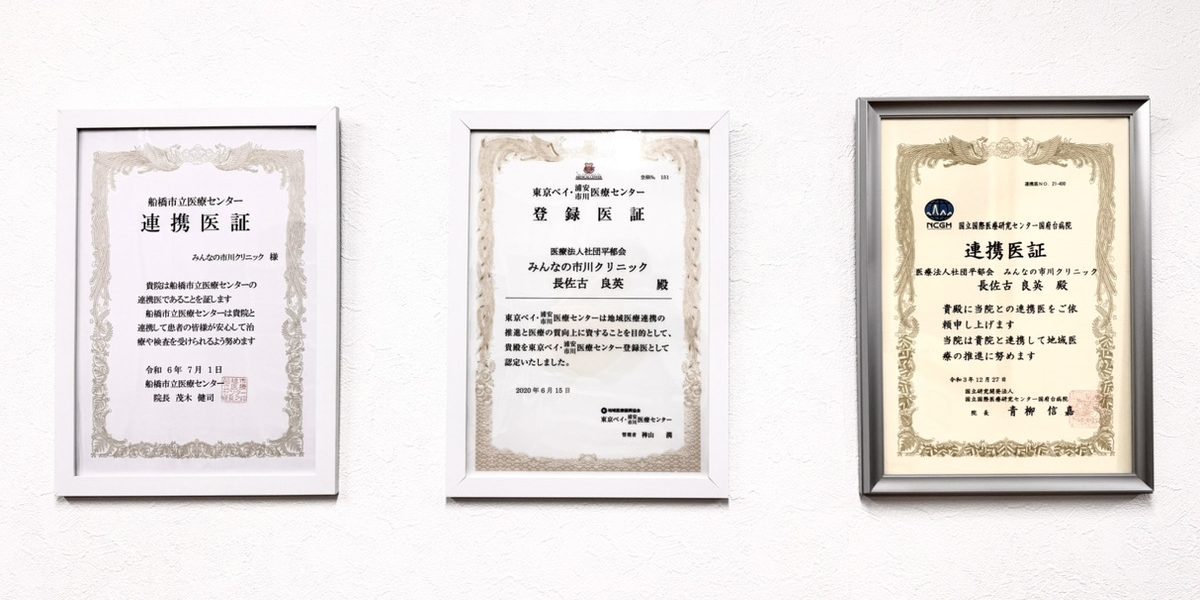 船橋市立医療センター
連携医証
みんなの市川クリニック 様
貴院は船橋市立医療センターの
連携医であることを証します
船橋市立医療センターは貴院と
連携して患者の皆様が安心して治
療や検査を受けられるよう努めます
令和 6年 7月 1日
船橋市立医療センター
院長 茂木 健司
MEDICAL CENTER
登録No. 151
東京ベイ・浦安市川医療センター
登録医証
医療法人社団平郁会
みんなの市川クリニック
長佐古 良英 殿
東京ベイ・浦安市川医療センターは地域医療連携の
推進と医療の質向上に資することを目的として、
貴殿を東京ベイ・浦安市川医療センター登録医として
認定いたしました。
2020年6月15日
地域医療振興協会
東京ベイ・浦安市川医療センター
管理者 神山 潤
連携医NO. 21-400
NCGM 国立国際医療研究センター国府台病院
連携医証
医療法人社団平郁会 みんなの市川クリニック
長佐古 良英 殿
貴殿に当院との連携医をご依
頼申し上げます
当院は貴院と連携して地域医
療の推進に努めます
令和3年12月27日
国立研究開発法人
国立国際医療研究センター国府台病院
院長 青柳 信嘉